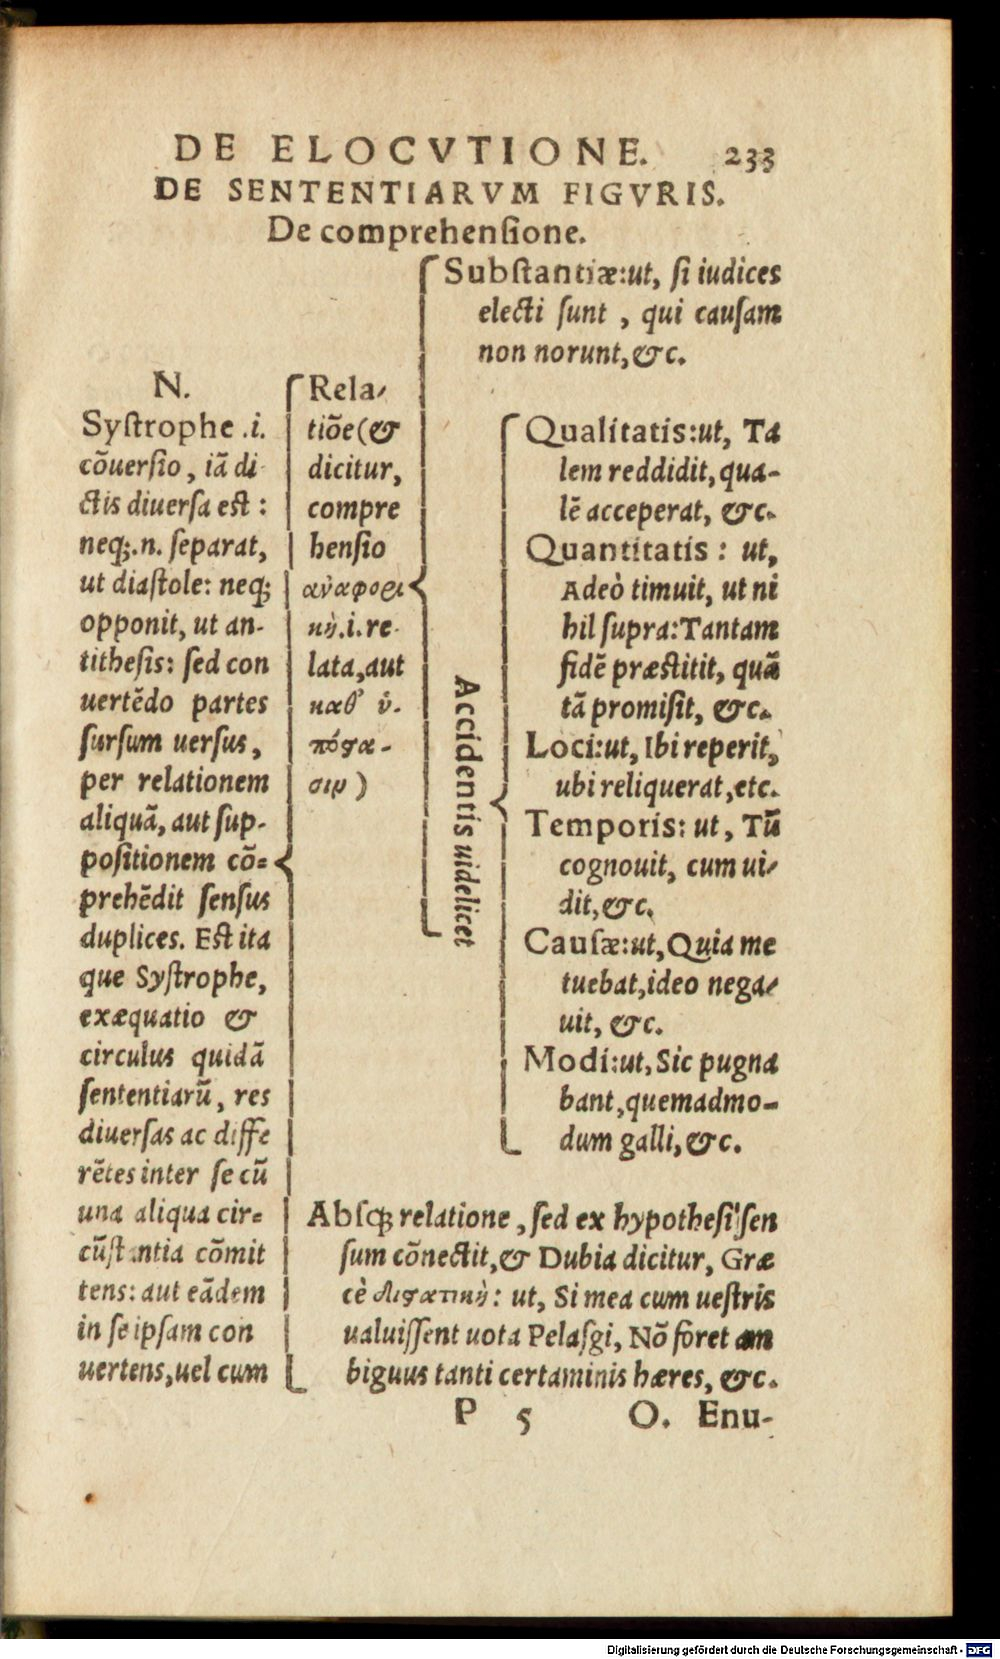 DE ELOCVTIONE. 233
DE SENTENTIARVM FIGVRIS.
De comprehensione.
N.
Systrophe .i.
cōuersio, iā di
ctis diuersa est:
neq;.n. separat,
ut diastole: neq;
opponit, ut an-
tithesis: sed con
uertēdo partes
sursum uersus,
per relationem
aliquā, aut sup-
positionem cō=
prehēdit sensus
duplices. Est ita
que Systrophe,
exæquatio &
circulus quidā
sententiarū, res
diuersas ac diffe
rētes inter se cū
una aliqua cir=
cūstantia cōmit
tens: aut eādem
in se ipsam con
uertens, uel cum
Rela-
tiōe (&
dicitur,
compre
hensio
ἀναφορι
κὴ.i.re-
lata, aut
καθ' ὑ-
πόϛα-
σιν)
Substantiæ: ut, si iudices
electi sunt, qui causam
non norunt, &c.
Accidentis uidelicet
Qualitatis: ut, Ta
lem reddidit, qua-
lē acceperat, &c.
Quantitatis: ut,
Adeò timuit, ut ni
hil supra: Tantam
fidē præstitit, quā
tā promisit, &c.
Loci: ut, Ibi reperit,
ubi reliquerat, etc.
Temporis: ut, Tū
cognouit, cum ui-
dit, &c.
Causæ: ut, Quia me
tuebat, ideo nega-
uit, &c.
Modi: ut, Sic pugna
bant, quemadmo-
dum galli, &c.
Absq; relatione, sed ex hypothesi sen
sum cōnectit, & Dubia dicitur, Græ
cè διϛατικὴ: ut, Si mea cum uestris
ualuissent uota Pelasgi, Nō foret am
biguus tanti certaminis hæres, &c.
P 5 O. Enu-
Digitalisierung gefördert durch die Deutsche Forschungsgemeinschaft - DFG